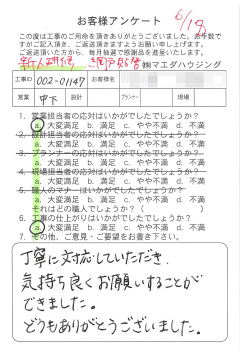 お客様アンケート
6/19
この度は工事のご用命を頂きありがとうございました。お手数で
すがご記入頂き、ご返送頂きますようお願い申し上げます。
ご返送頂いた方から、毎月抽選で感謝品を進呈いたします。
㈱マエダハウジング
工事ID 002-01147 お客様名
営業 中下 設計 プランナー 現場
1. 営業担当者の応対はいかがでしたでしょうか?
a. 大変満足 b. 満足 c. やや不満 d. 不満
2. 設計担当者の応対はいかがでしたでしょうか?
a. 大変満足 b. 満足 c. やや不満 d. 不満
3. プランナーの応対はいかがでしたでしょうか?
a. 大変満足 b. 満足 c. やや不満 d. 不満
4. 現場担当者の応対はいかがでしたでしょうか?
a. 大変満足 b. 満足 c. やや不満 d. 不満
5. 職人のマナーはいかがでしたでしょうか?
a. 大変満足 b. 満足 c. やや不満 d. 不満
それはどの職人でしょうか?( )
6. 工事の仕上がりはいかがでしたでしょうか?
a. 大変満足 b. 満足 c. やや不満 d. 不満
7. その他、ご意見・ご要望をお書き下さい。
丁寧に対応していただき
気持ち良くお願いすることが
できました。
どうもありがとうございました。